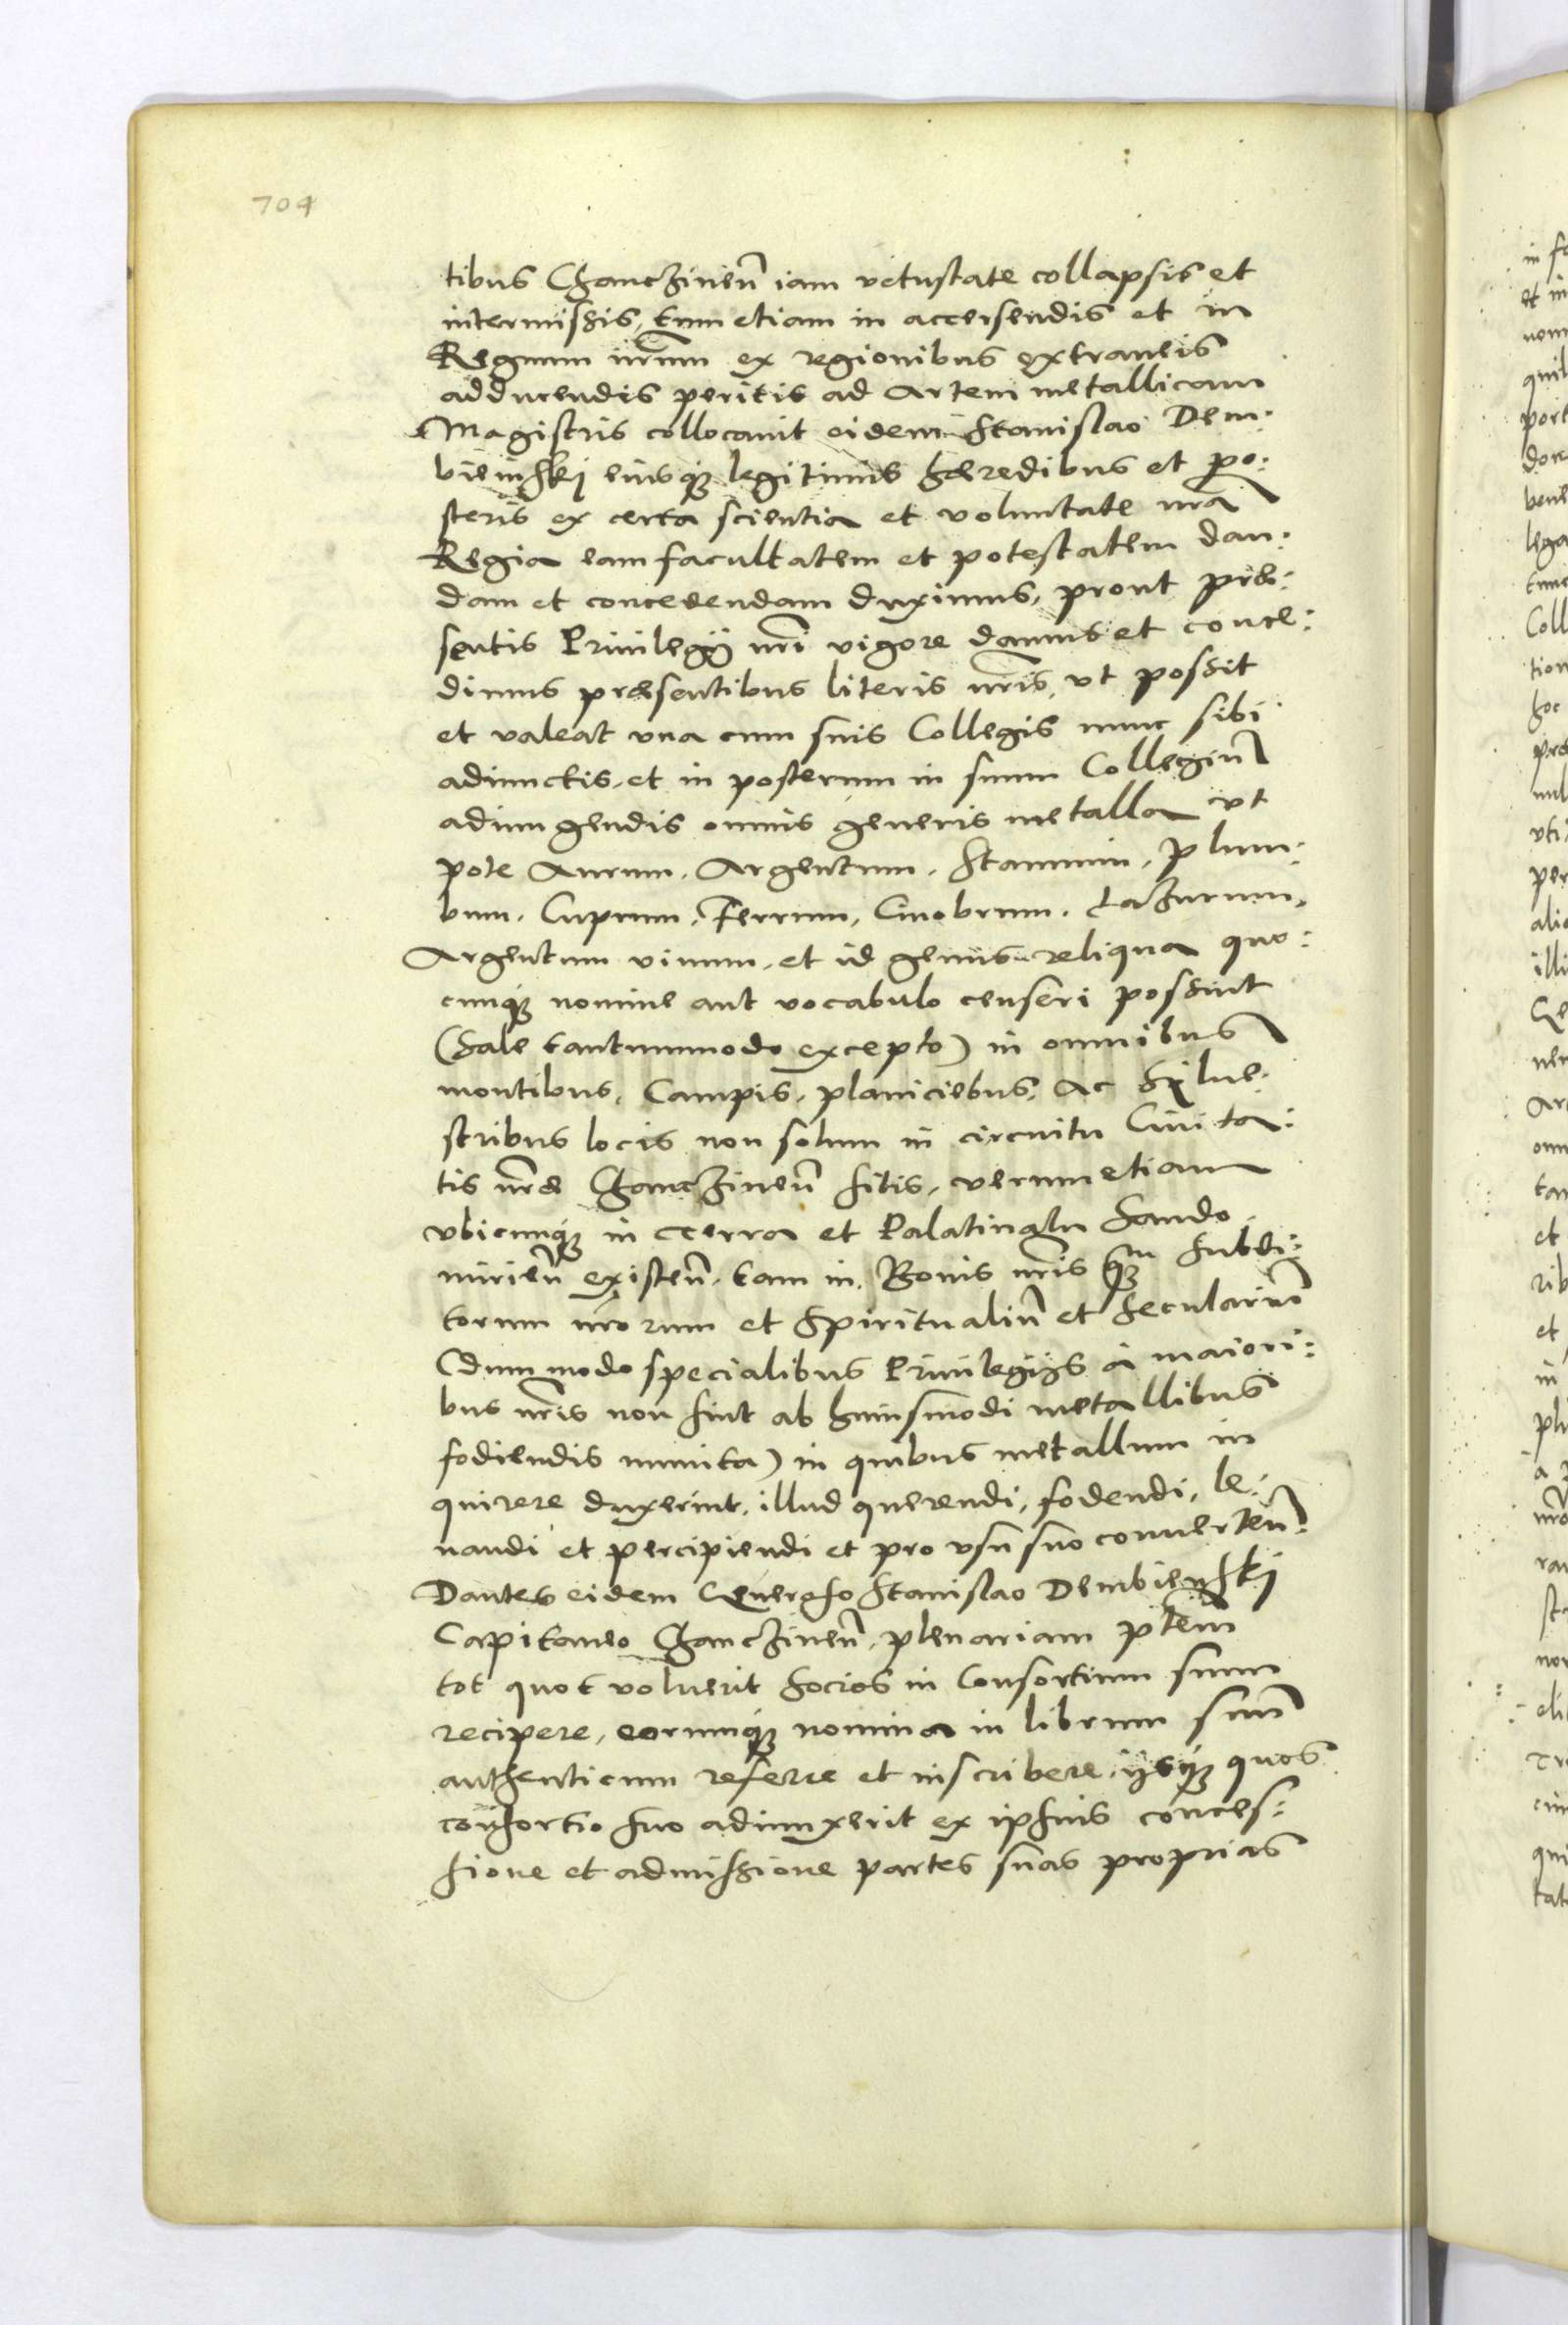 704
tibus Chanczineñ iam vetustate collapsis et
intermissis, tum etiam in accersendis et in
Regnum nr̃um ex regionibus extraneis
adducendis peritis ad Artem metallicam
Magistris collocauit eidem Stanislao Dem:
bienskj eiusqꝫ legitimis hæredibus et po:
steris ex certa scientia et voluntate nr̃a
Regia eam facultatem et potestatem dan:
dam et concedendam duximus, prout præ:
sentis Priuilegij nr̃i vigore damus et conce:
dimus præsentibus literis nr̃is, vt possit
et valeat vna cum suis Collegis nunc sibi
adiunctis, et in posterum in suum Collegiũ
adiungendis omnis generis metalla vt
pote Aurum, Argentum, Stannum, Plum:
bum, Cuprum, Ferrum, Cinobrum, Lazurum,
Argentum viuum, et id genus reliqua quo:
cunqꝫ nomine aut vocabulo censeri possint
(Sale tantummodo excepto) in omnibus
montibus, Campis, planiciebus, Ac Sylue:
stribus locis non solum in circuitu Ciuita:
tis nr̃æ Chanczineñ sitis, verumetiam
vbicunqꝫ in Terra et Palatinatu Sando
mirieñ existeñ, tam in Bonis nr̃is qꝫ in Subdi:
torum nr̃orum et Spiritualiũ et Seculariũ
(dummodo specialibus Priuilegijs à maiori:
bus nr̃is non sint ab huiusmodi metallibus
fodiendis munita) in quibus metallum in
quirere duxerint, illud querendi, fodendi, le:
uandi et percipiendi et pro vsu suo conuerteñ.
Dantes eidem Generoso Stanislao Dembienskj
Capitaneo Chanczineñ, plenariam ptẽm
tot quot voluerit Socios in Consortium suum
recipere, eorumqꝫ nomina in librum suũ
authenticum referre et inscribere, ijsqꝫ quos
consortio suo adiunxerit ex ipsius conces:
sione et admissione partes suas proprias